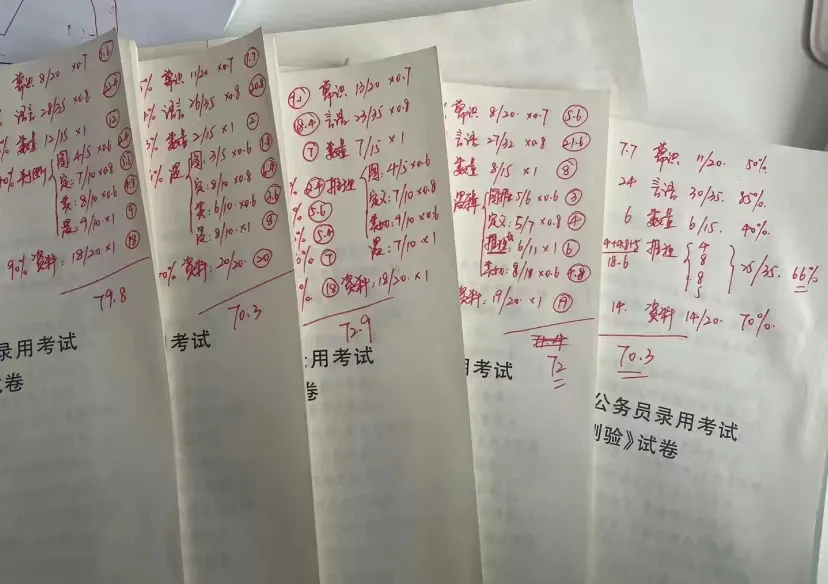 常识 8/20 ×0.7 5.6
语言 28/35 ×0.8
数量 12/15 ×1 12
图: 4/5 ×0.6
定: 7/10 ×0.8
类: 8/10 ×0.6
逻: 9/10 ×1 9
90% 资料: 18/20 ×1 18
79.8
录用考试
卷
常识 11/20 ×0.7 7.7
语言 26/35 ×0.8 20.8
数量 2/15 ×1 2
图: 3/5 ×0.6 1.8
定: 8/10 ×0.8
类: 6/10 ×0.6
逻: 8/10 ×1 8
资料: 20/20 20
70.3
考试
9.1 常识 13/20 ×0.7
18.4 言语 23/35 ×0.8
7 数量 7/15 ×1
% 2.4 推理 图: 4/5 ×0.6
% 5.6 定义: 7/10 ×0.8
% 5.4 类比: 9/10 ×0.6
% 7 逻: 7/10 ×1
% 18 资料: 18/20 ×1
72.9
用考试
卷
常识 8/20 ×0.7 5.6
言语 27/32 ×0.8 21.6
数量 8/15 ×1 8
图推: 5/6 ×0.6 3
定义: 5/7 ×0.8 4
6/11 ×1 6
类比: 8/10 ×0.6 4.8
资料: 19/20 ×1 19
72
考试
7.7 常识 11/20. 50%
24 言语 30/35. 85%
6 数量 6/15. 40%
4+4.8+5
18.6 推理 4 8 8 5 25/35. 66%
14. 资料 14/20. 70%
70.3
公务员录用考试
测验》试卷